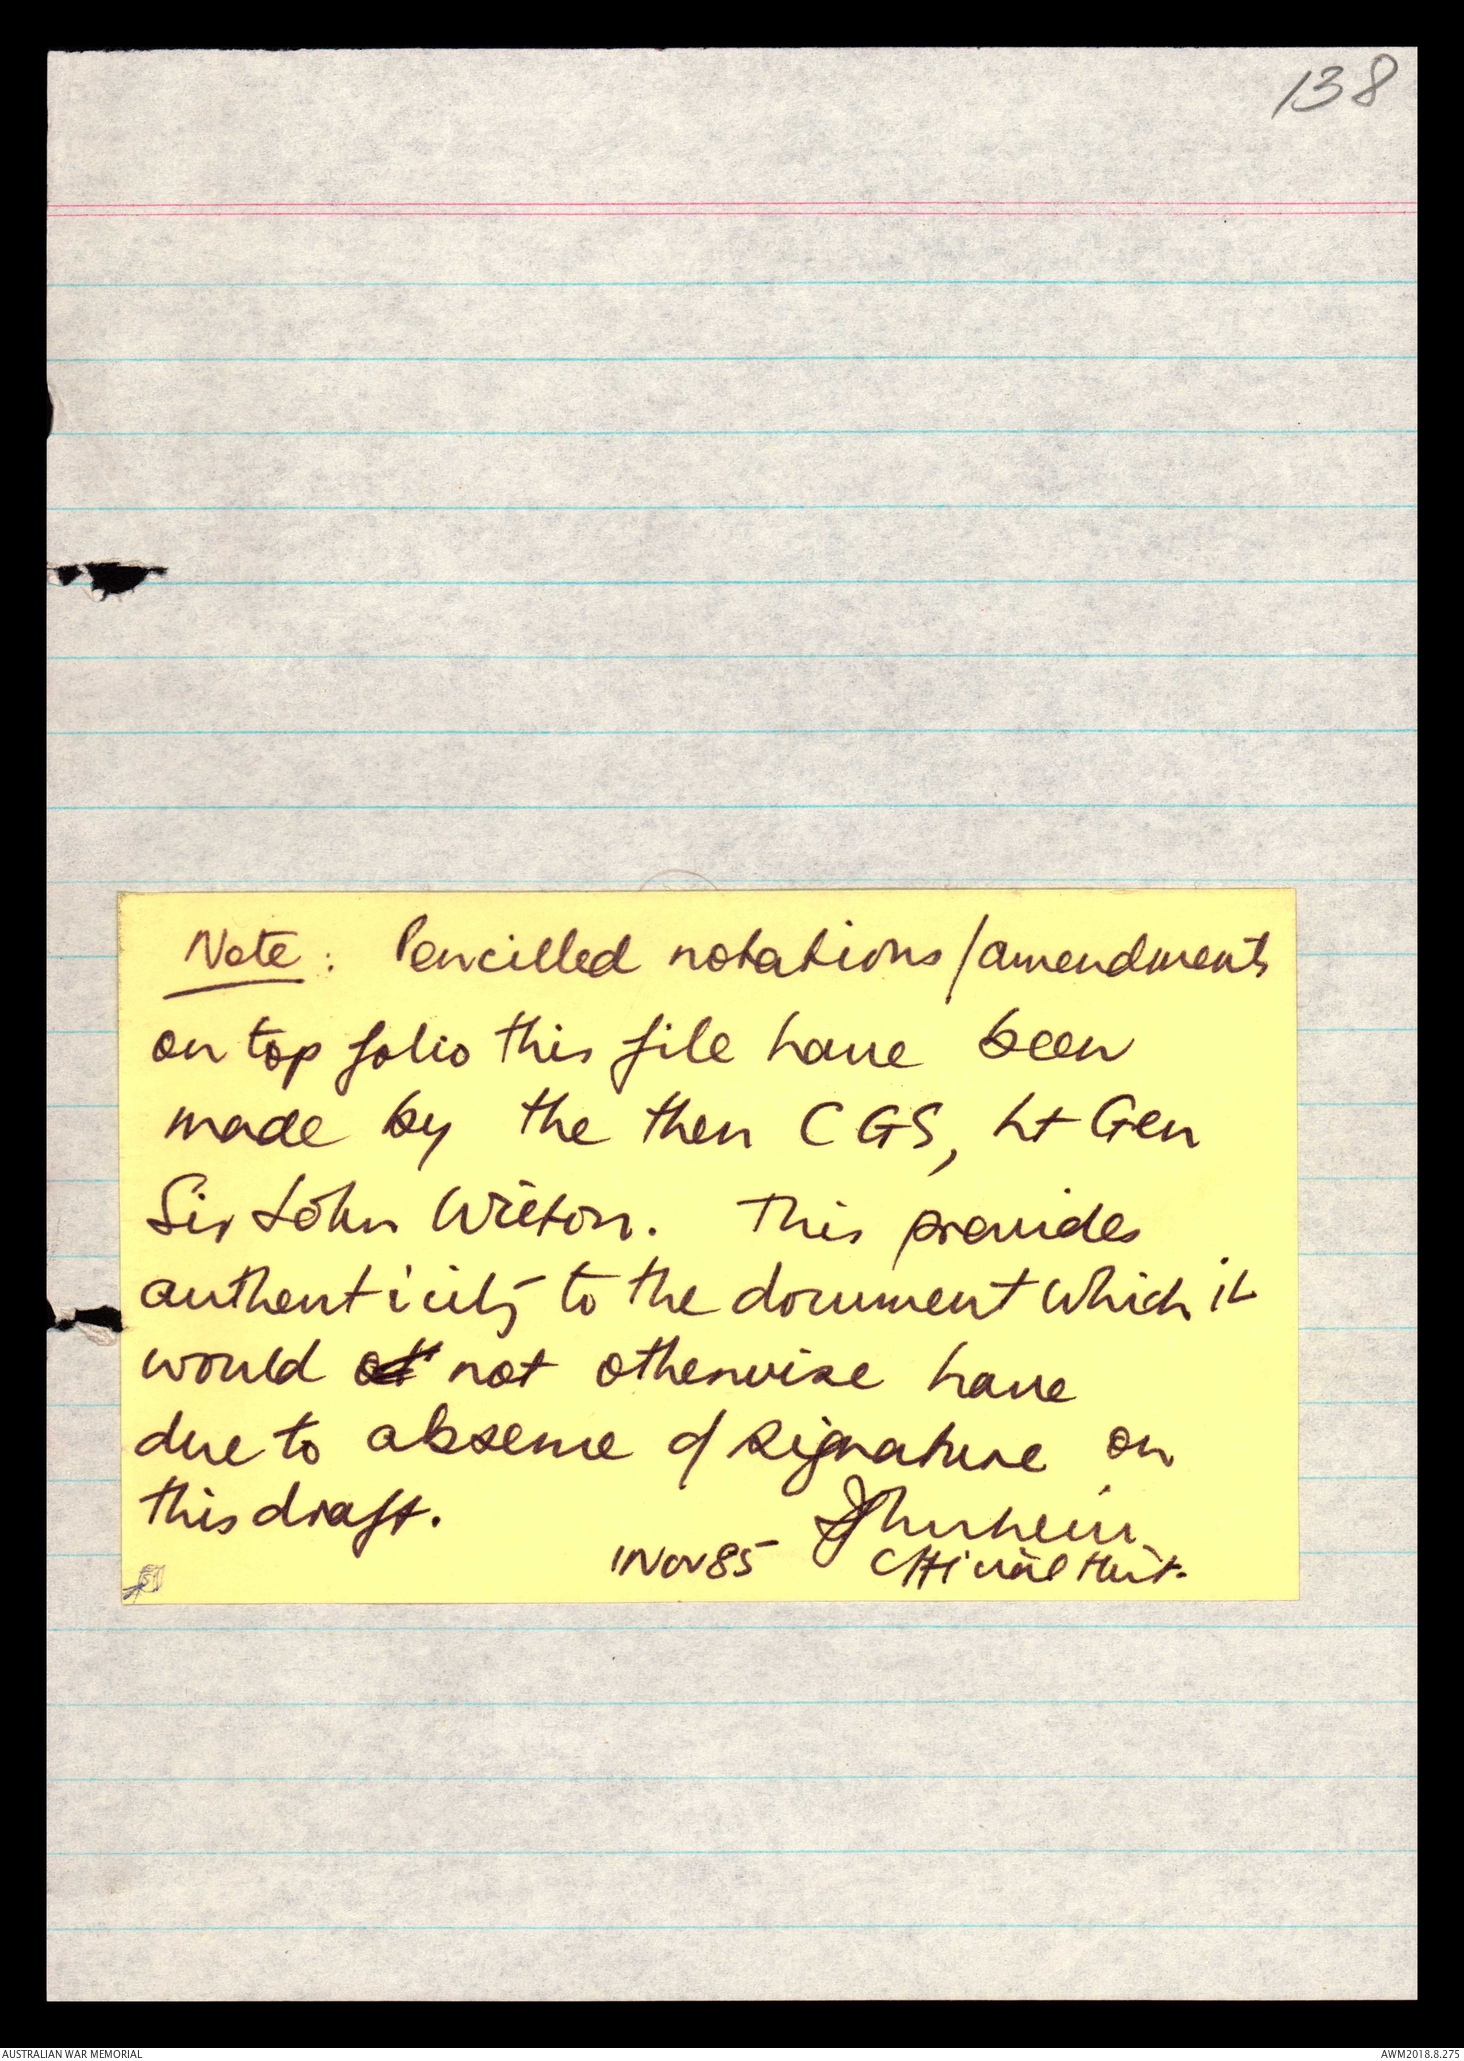 138
Note: Pencilled notations/amendments
on top folio this file have been
made by the then CGS, Lt Gen
Sir John Wilton. This provides
authenticity to the document which it
would not otherwise have
due to absence of signature on
this draft.
1 Nov 85 Official Hist.
AUSTRALIAN WAR MEMORIAL
AWM2018.8.275